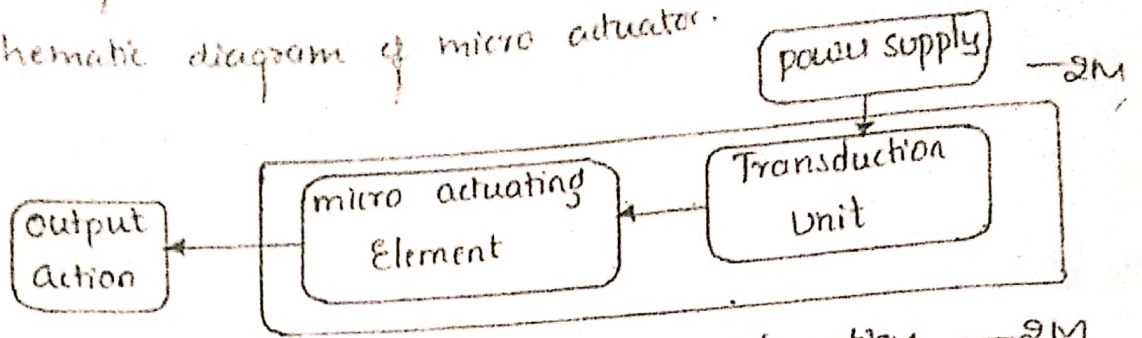 hematic diagram of micro actuator.
power supply
-2M
Transduction
Unit
micro actuating
Element
Output
Action
-2M